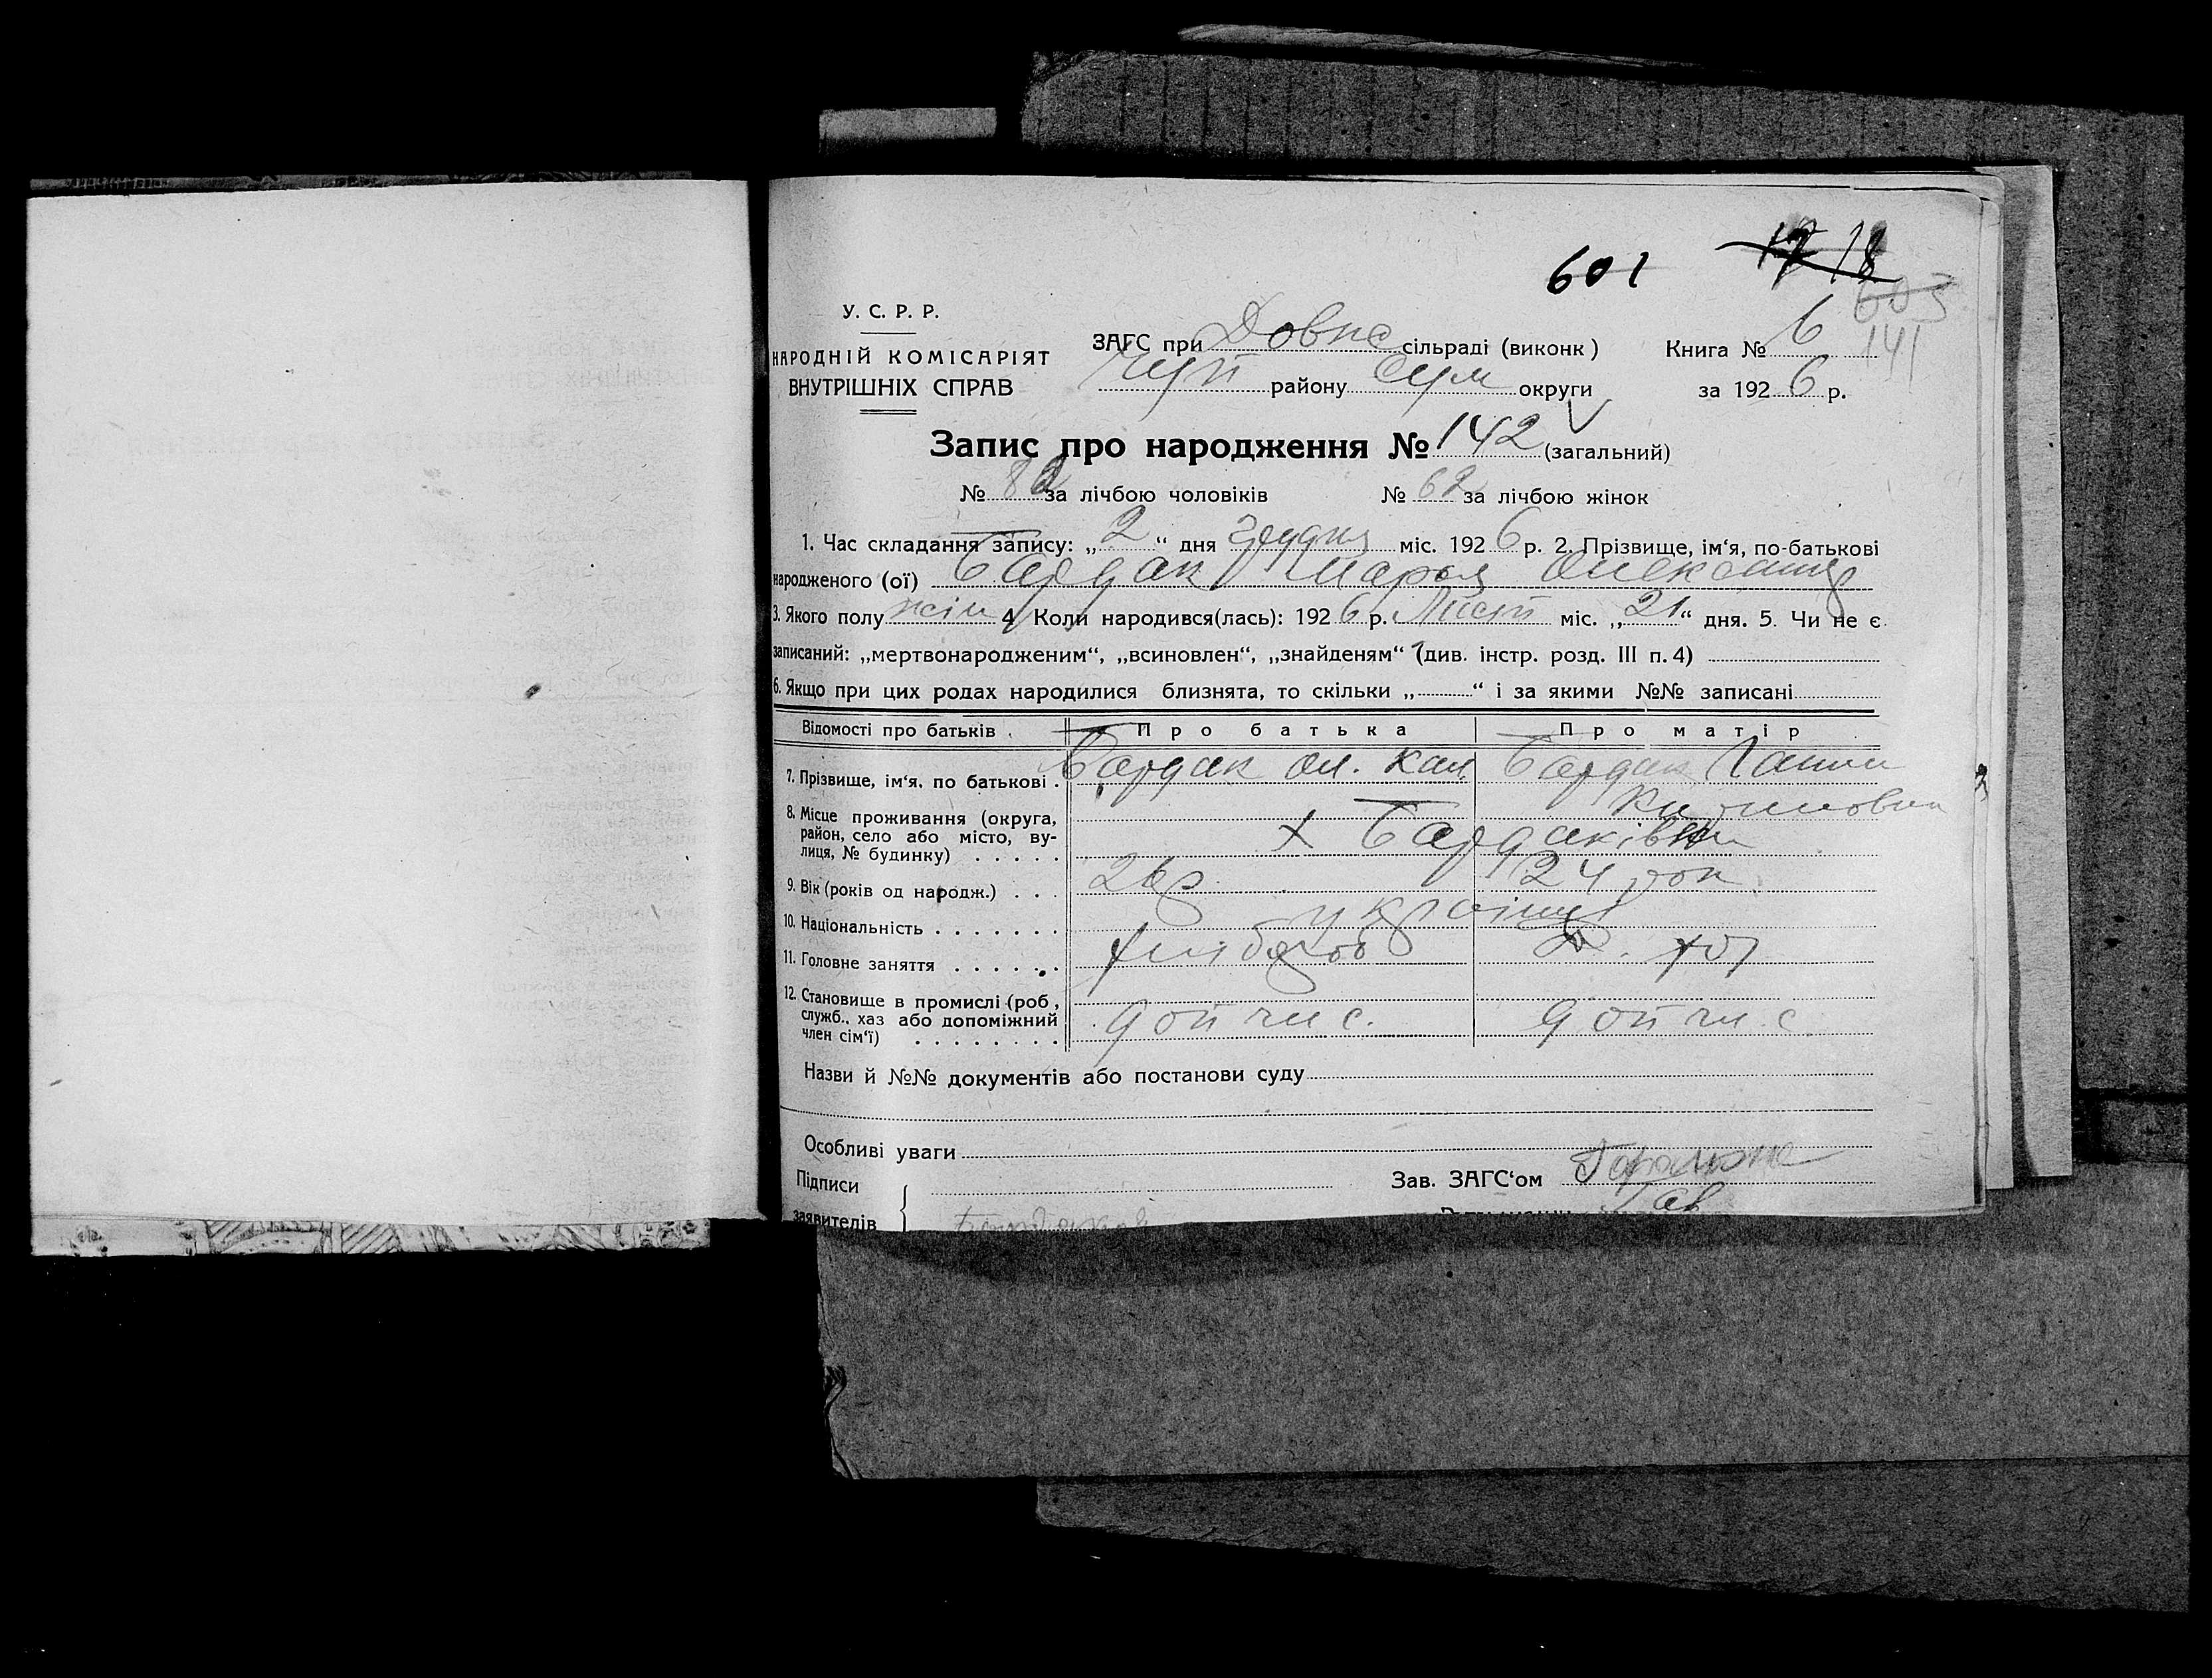 601 17 18
603
У. С. Р. Р.
НАРОДНІЙ КОМІСАРІЯТ
ВНУТРІШНІХ СПРАВ
ЗАГС при Довж сільраді (виконк)
Чуп району Сум округи
Книга № 6 141
за 192 6 р.
Запис про народження № 142 (загальний)
№ 82 за лічбою чоловіків № 62 за лічбою жінок
1. Час складання запису: „ 2 “ дня грудня міс. 192 6 р. 2. Прізвище, ім‘я, по-батькові
народженого (ої) Бардак Марія Олександр
3. Якого полу жін 4. Коли народився(лась): 192 6 р. Лист міс. „ 21 “ дня. 5. Чи не є
записаний: „мертвонародженим“, „всиновлен“, „знайденям“ (див. інстр. розд. III п. 4)
6. Якщо при цих родах народилися близнята, то скільки „ “ і за якими №№ записані
Відомості про батьків Про батька Про матір
7. Прізвище, ім‘я, по батькові Бардак Ол. Бардак Ганна
8. Місце проживання (округа,
район, село або місто, ву-
лиця, № будинку) х Бардаківка
9. Вік (років од народж.) 26 р. 24 рок
10. Національність україн
11. Головне заняття хлібороб
12. Становище в промислі (роб,
служб., хаз або допоміжний
член сім‘ї) доп чл. с. доп чл. с.
Назви й №№ документів або постанови суду
Особливі уваги
Підписи
заявителів
Зав. ЗАГС‘ом